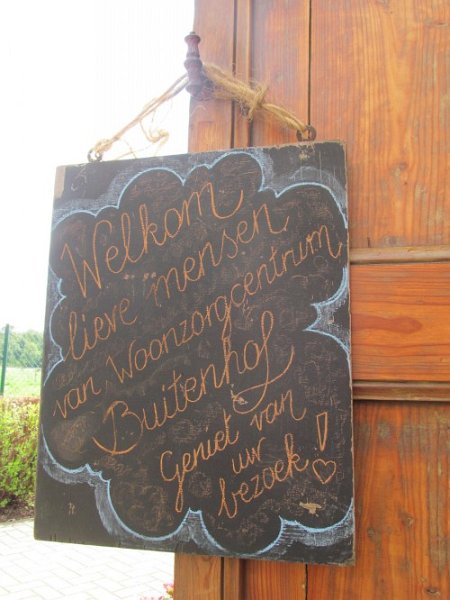 Welkom
lieve mensen
van Woonzorgcentrum
Buitenhof
Geniet van
uw
bezoek!